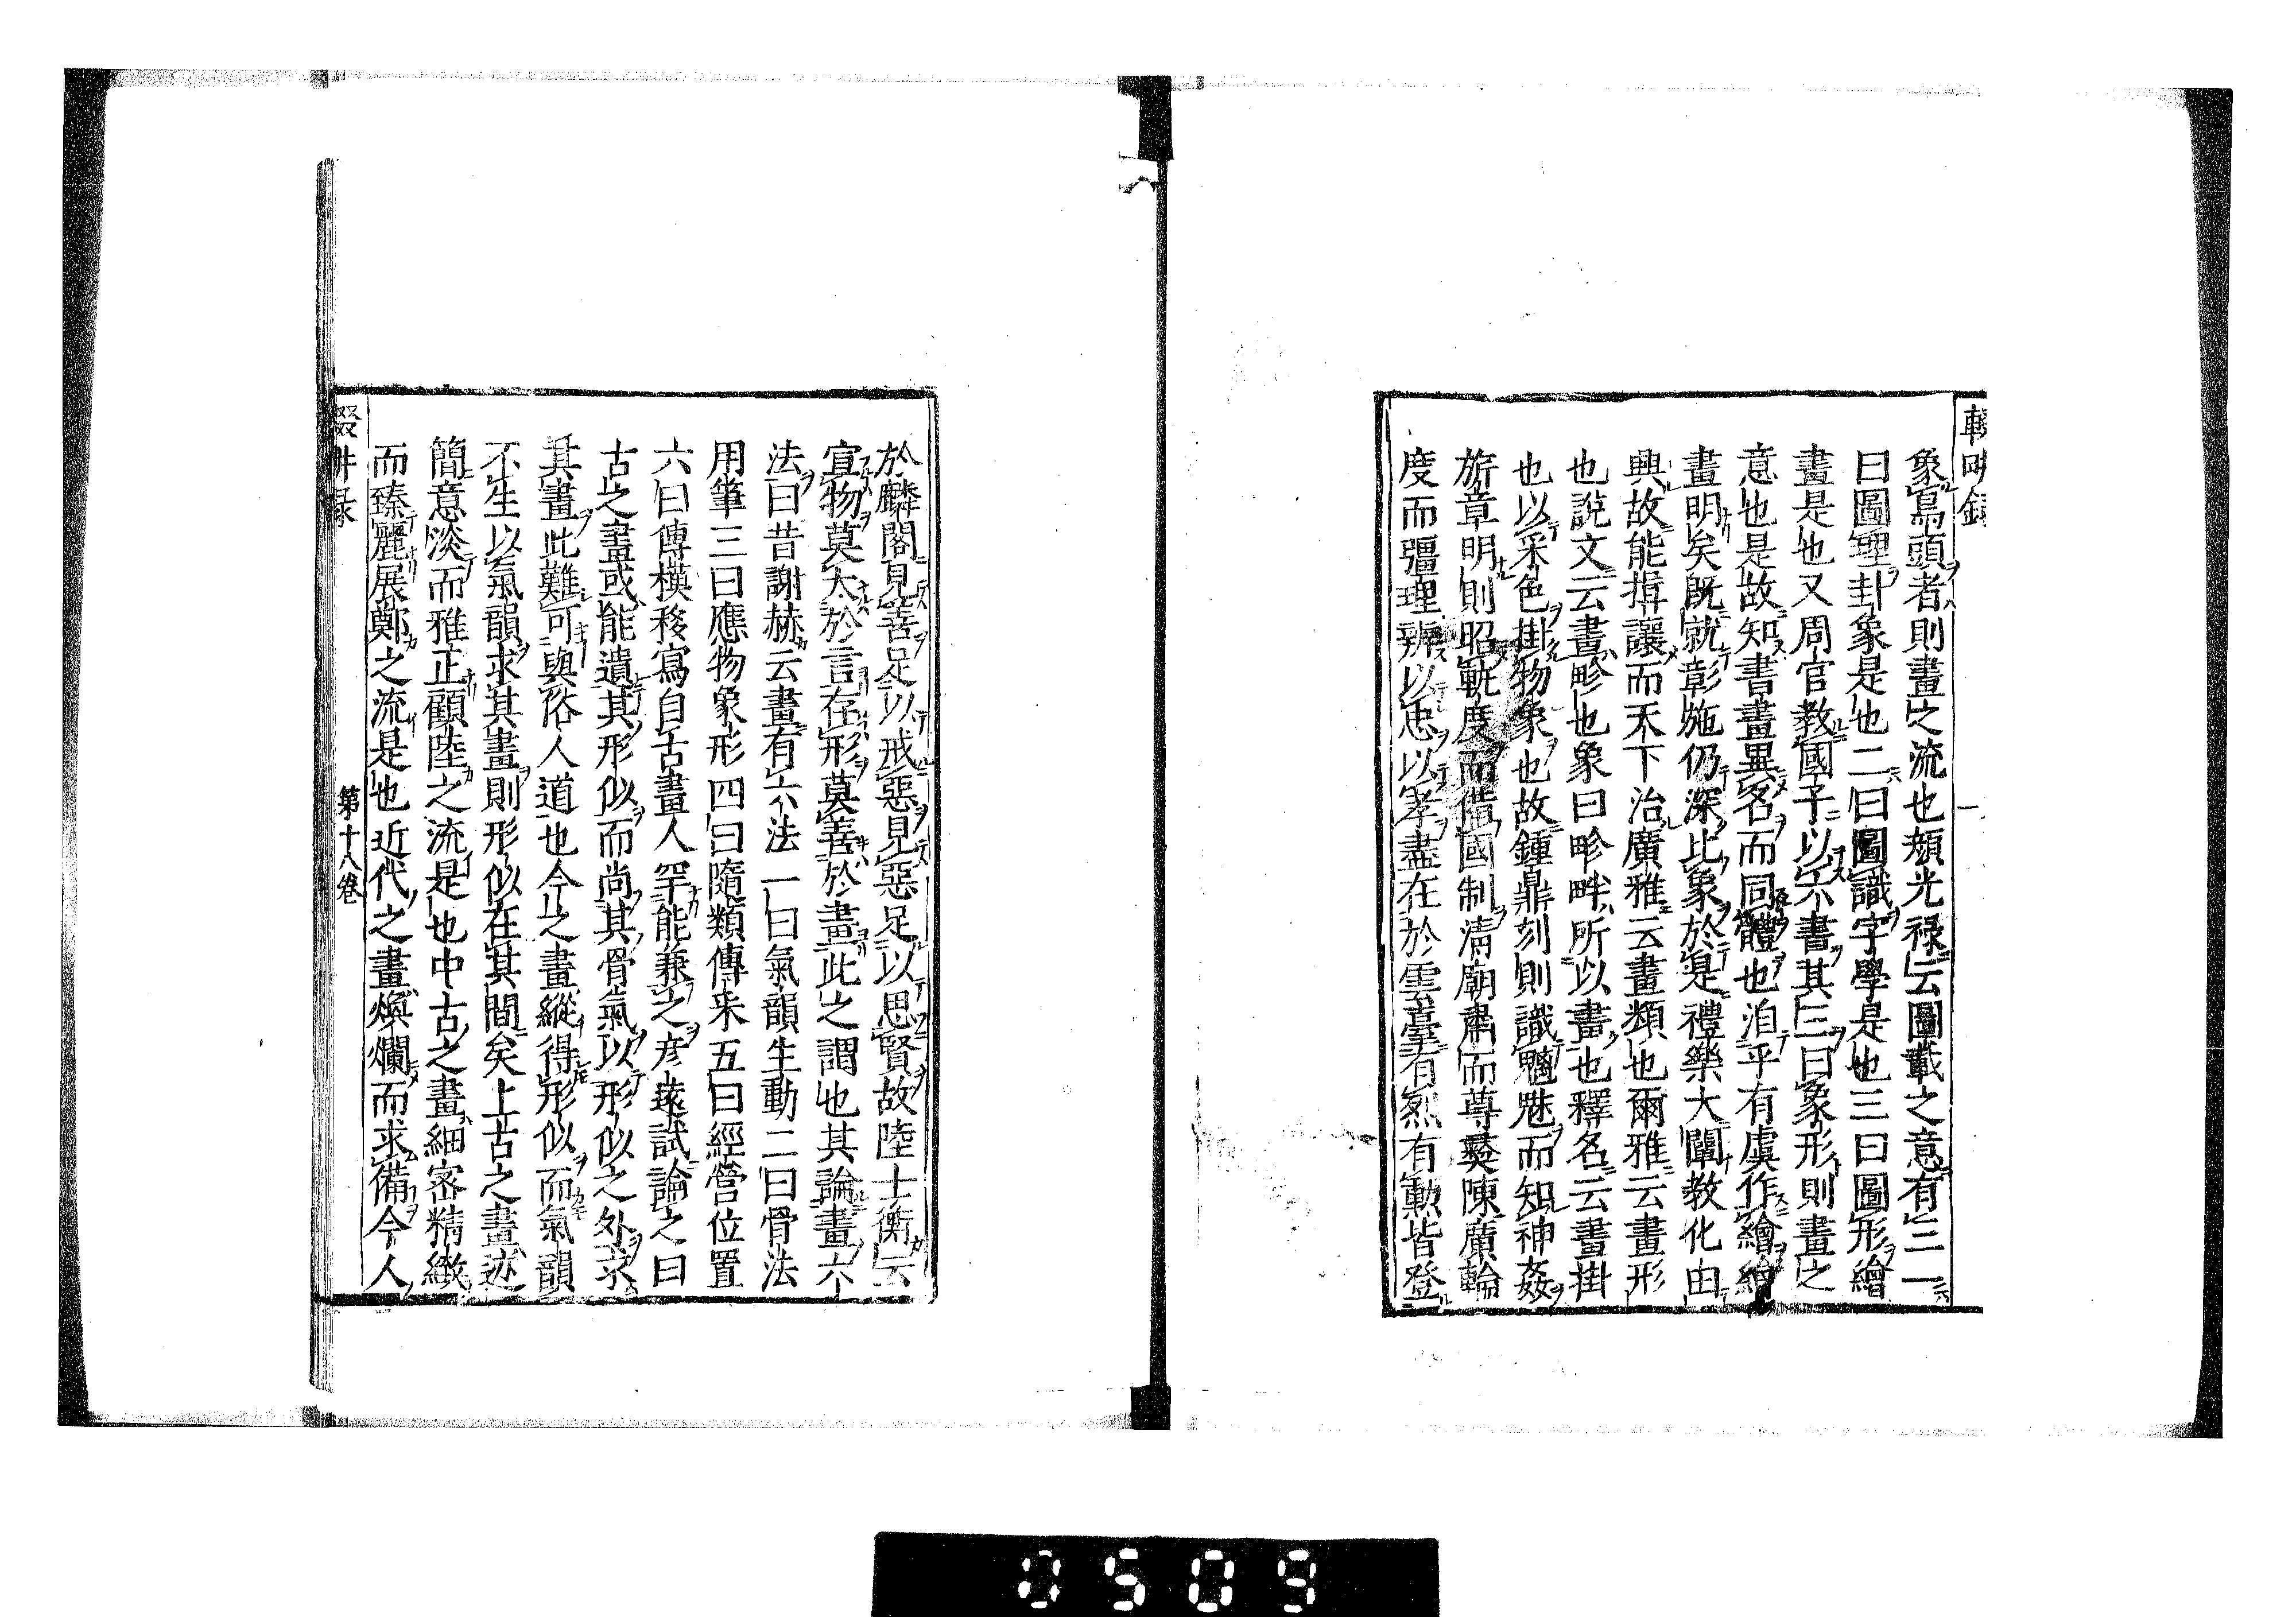 輟耕錄
象鳥頭者則畫之流也頏光祿云圖載之意有三一
曰圖理卦象是也二曰圖識字學是也三曰圖形繪
畫是也又周官教國子以六書其三曰象形則畫之
意也是故知書畫異名而同體也洎乎有虞作繪繪
畫明矣既就彰施仍深比象於是禮樂大闡教化由
興故能揖讓而天下治廣雅云畫類也爾雅云畫形
也說文云畫畛也象曰畛畔所以畫也釋名云畫掛
也以采色掛物象也故鍾鼎刻則識魑魅而知神姦
旂章明則昭軌度而備國制清廟肅而尊彝陳廣輪
度而疆理辨以忠以孝盡在於雲臺有烈有勳皆登
於麟閣見善足以戒惡見惡足以思賢故陸士衡云
宣物莫大於言存形莫善於畫此之謂也其論畫六
法曰昔謝赫云畫有六法一曰氣韻生動二曰骨法
用筆三曰應物象形四曰隨類傳采五曰經營位置
六曰傳模移寫自古畫人罕能兼之彥遠試論之曰
古之畫或能遺其形似而尚其骨氣以形似之外求
其畫此難可與俗人道也今之畫縱得形似而氣韻
不生以氣韻求其畫則形似在其間矣上古之畫迹
簡意淡而雅正顧陸之流是也中古之畫細密精緻
而臻麗展鄭之流是也近代之畫煥爛而求備今人
輟耕录
第十八卷
0509